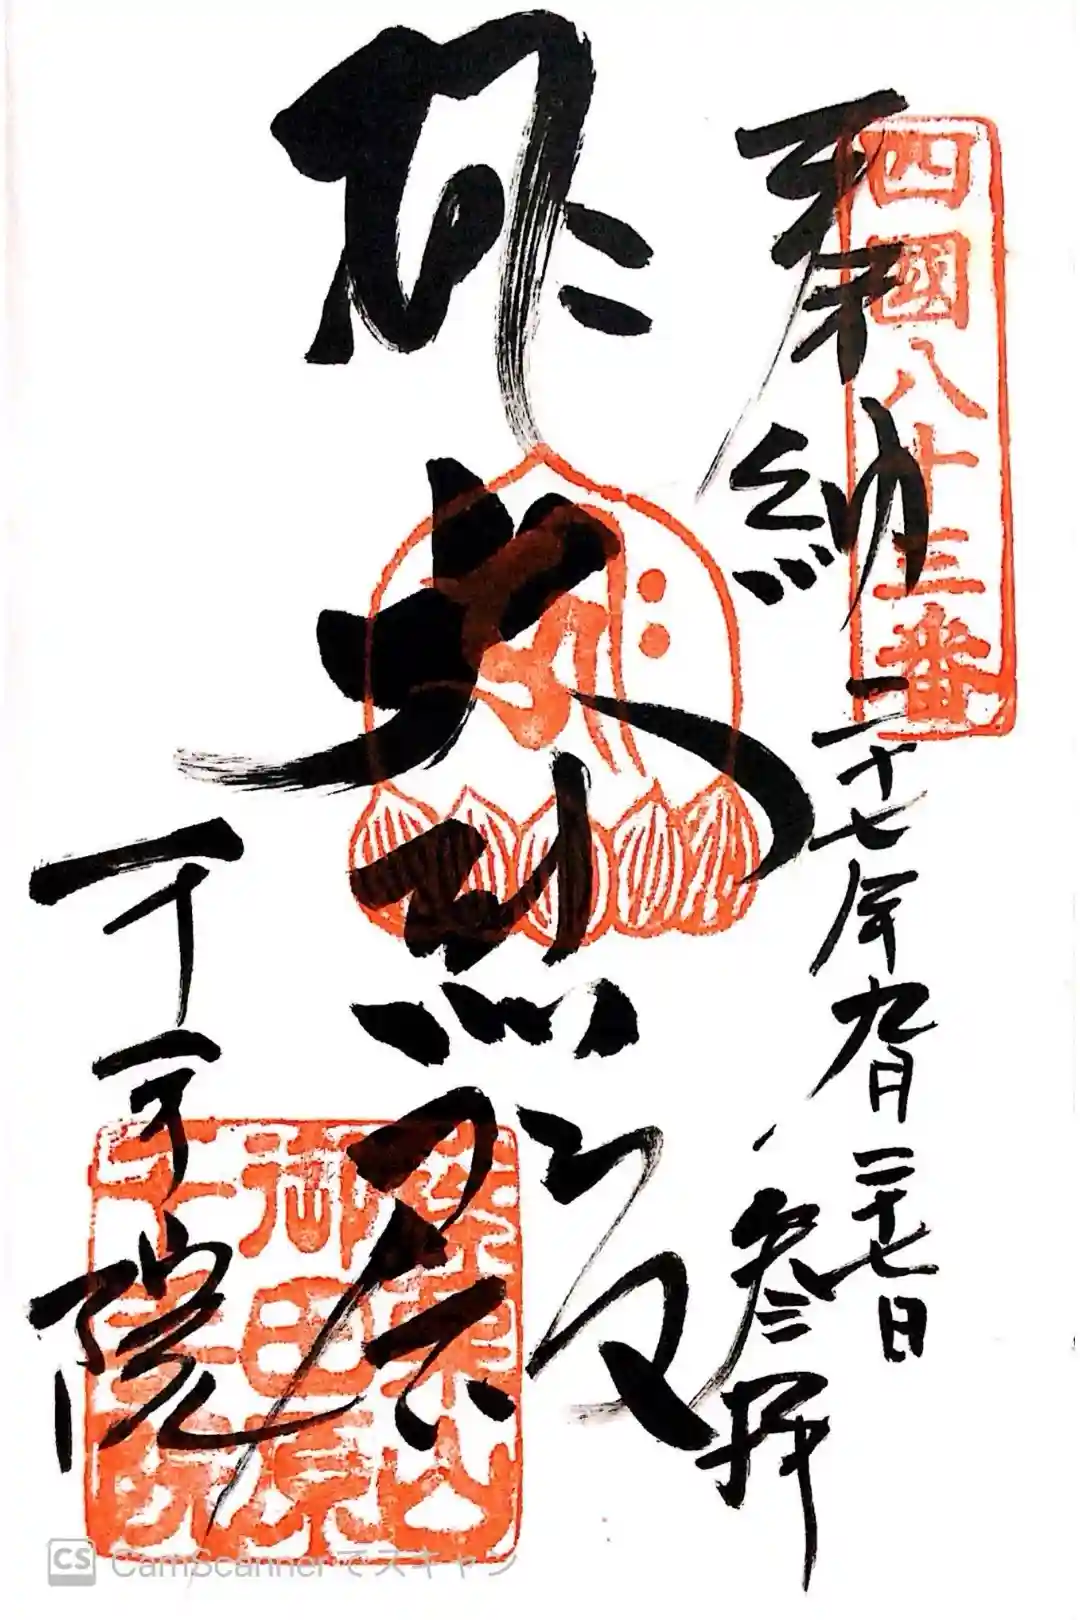 四國八十三番
奉納 二十七年九月二十七日 参拝
大悲殿
千手院
御田原
千手院
CS CamScannerでスキャン